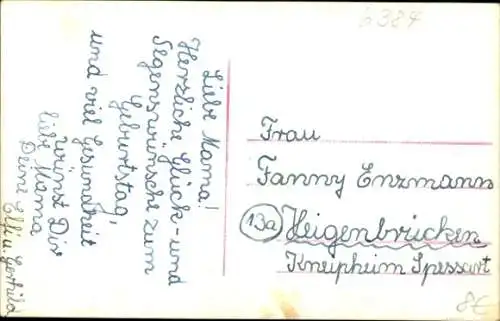 6384
Liebe Mama!
Herzliche Glück- und
Segenswünsche zum
Geburtstag,
und viel Gesundheit
wünst Dir
liebe Mama
Deine Elfi u. Gerhild
Frau
Fanny Enzmann
13a Heigenbrücken
Kneipheim Spessart
8€